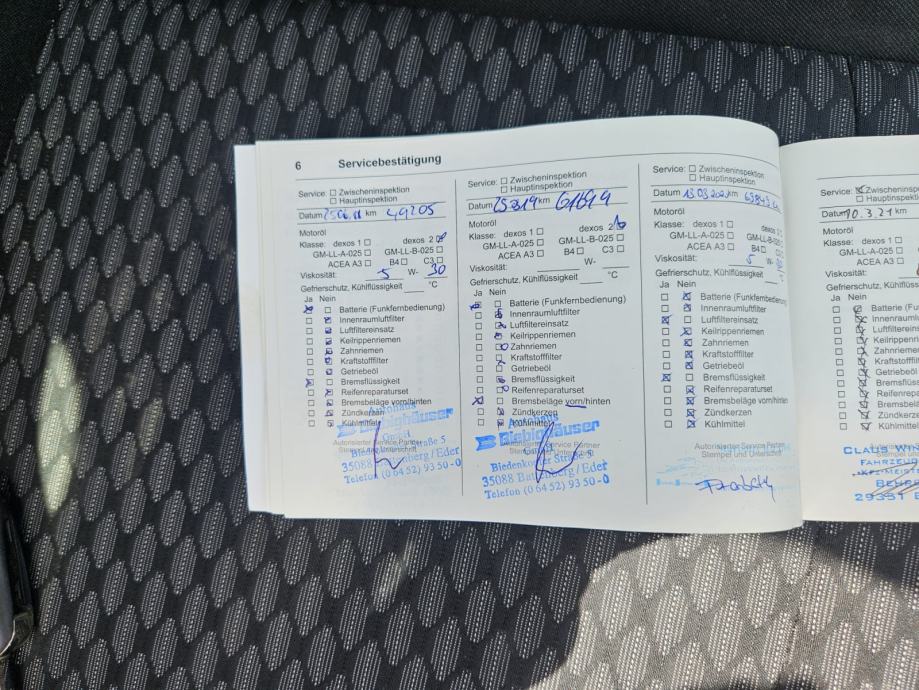 6 Servicebestätigung
Service: Zwischeninspektion
Hauptinspektion
Datum km 49205
Motoröl
Klasse: dexos 1 dexos 2
GM-LL-A-025 GM-LL-B-025
ACEA A3 B4 C3
Viskosität: 5 W- 30
Gefrierschutz, Kühlflüssigkeit °C
Ja Nein
Batterie (Funkfernbedienung)
Innenraumluftfilter
Luftfiltereinsatz
Keilrippenriemen
Zahnriemen
Kraftstofffilter
Getriebeöl
Bremsflüssigkeit
Reifenreparaturset
Bremsbeläge vorn/hinten
Zündkerzen
Kühlmittel
Autorisierter Service Partner
Stempel und Unterschrift
Autohaus
Biebighäuser
GmbH
Straße 5
35088 Battenberg/Eder
Telefon (0 64 52) 93 50-0
Service: Zwischeninspektion
Hauptinspektion
Datum km 61614
Motoröl
Klasse: dexos 1 dexos 2
GM-LL-A-025 GM-LL-B-025
ACEA A3 B4 C3
Viskosität: W-
Gefrierschutz, Kühlflüssigkeit °C
Ja Nein
Batterie (Funkfernbedienung)
Innenraumluftfilter
Luftfiltereinsatz
Keilrippenriemen
Zahnriemen
Kraftstofffilter
Getriebeöl
Bremsflüssigkeit
Reifenreparaturset
Bremsbeläge vorn/hinten
Zündkerzen
Kühlmittel
Autohaus
Biebighäuser
Autorisierter Service Partner
Biedenkopfer Straße 5
35088 Battenberg/Eder
Telefon (0 64 52) 93 50-0
Service: Zwischeninspektion
Hauptinspektion
Datum km
Motoröl
Klasse: dexos 1 dexos 2
GM-LL-A-025 GM-LL-B-025
ACEA A3 B4 C3
Viskosität: 5 W-
Gefrierschutz, Kühlflüssigkeit
Ja Nein
Batterie (Funkfernbedienung)
Innenraumluftfilter
Luftfiltereinsatz
Keilrippenriemen
Zahnriemen
Kraftstofffilter
Getriebeöl
Bremsflüssigkeit
Reifenreparaturset
Bremsbeläge vorn/hinten
Zündkerzen
Kühlmittel
Autorisierter Service Partner
Stempel und Unterschrift
Service: Zwischeninspektion
Hauptinspektion
Datum 10.3.21 km
Motoröl
Klasse: dexos 1
GM-LL-A-025
ACEA A3
Viskosität:
Gefrierschutz, Kühlflüssig
Ja Nein
Batterie (Fu
Innenraumlu
Luftfiltereins
Keilrippenrie
Zahnriemen
Kraftstofffilte
Getriebeöl
Bremsflüssig
Reifenrepara
Bremsbeläg
Zündkerzen
Kühlmittel
Autorisierter
Stempel un
CLAUS WIN
FAHRZEUG
KFZ-MEIST
29351